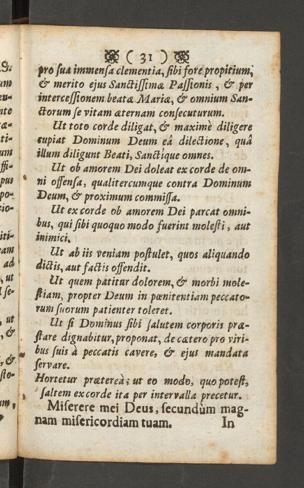 ( 31 )
pro sua immensa clementia, sibi fore propitium,
& merito ejus Sanctissimæ Passionis, & per
intercessionem beatæ Mariæ, & omnium San-
ctorum se vitam æternam consecuturum.
Ut toto corde diligat, & maximè diligere
cupiat Dominum Deum eâ dilectione, quâ
illum diligunt Beati, Sanctique omnes.
Ut ob amorem Dei doleat ex corde de om-
ni offensa, qualitercumque contra Dominum
Deum, & proximum commissa.
Ut ex corde ob amorem Dei parcat omni-
bus, qui sibi quoquo modo fuerint molesti, aut
inimici.
Ut ab iis veniam postulet, quos aliquando
dictis, aut factis offendit.
Ut quem patitur dolorem, & morbi mole-
stiam, propter Deum in pœnitentiam peccato-
rum suorum patienter toleret.
Ut si Dominus sibi salutem corporis præ-
stare dignabitur, proponat, de cætero pro viri-
bus suis à peccatis cavere, & ejus mandata
servare.
Hortetur præterea; ut eo modo, quo potest,
saltem ex corde ita per intervalla precetur.
Miserere mei Deus, secundùm mag-
nam misericordiam tuam.
In